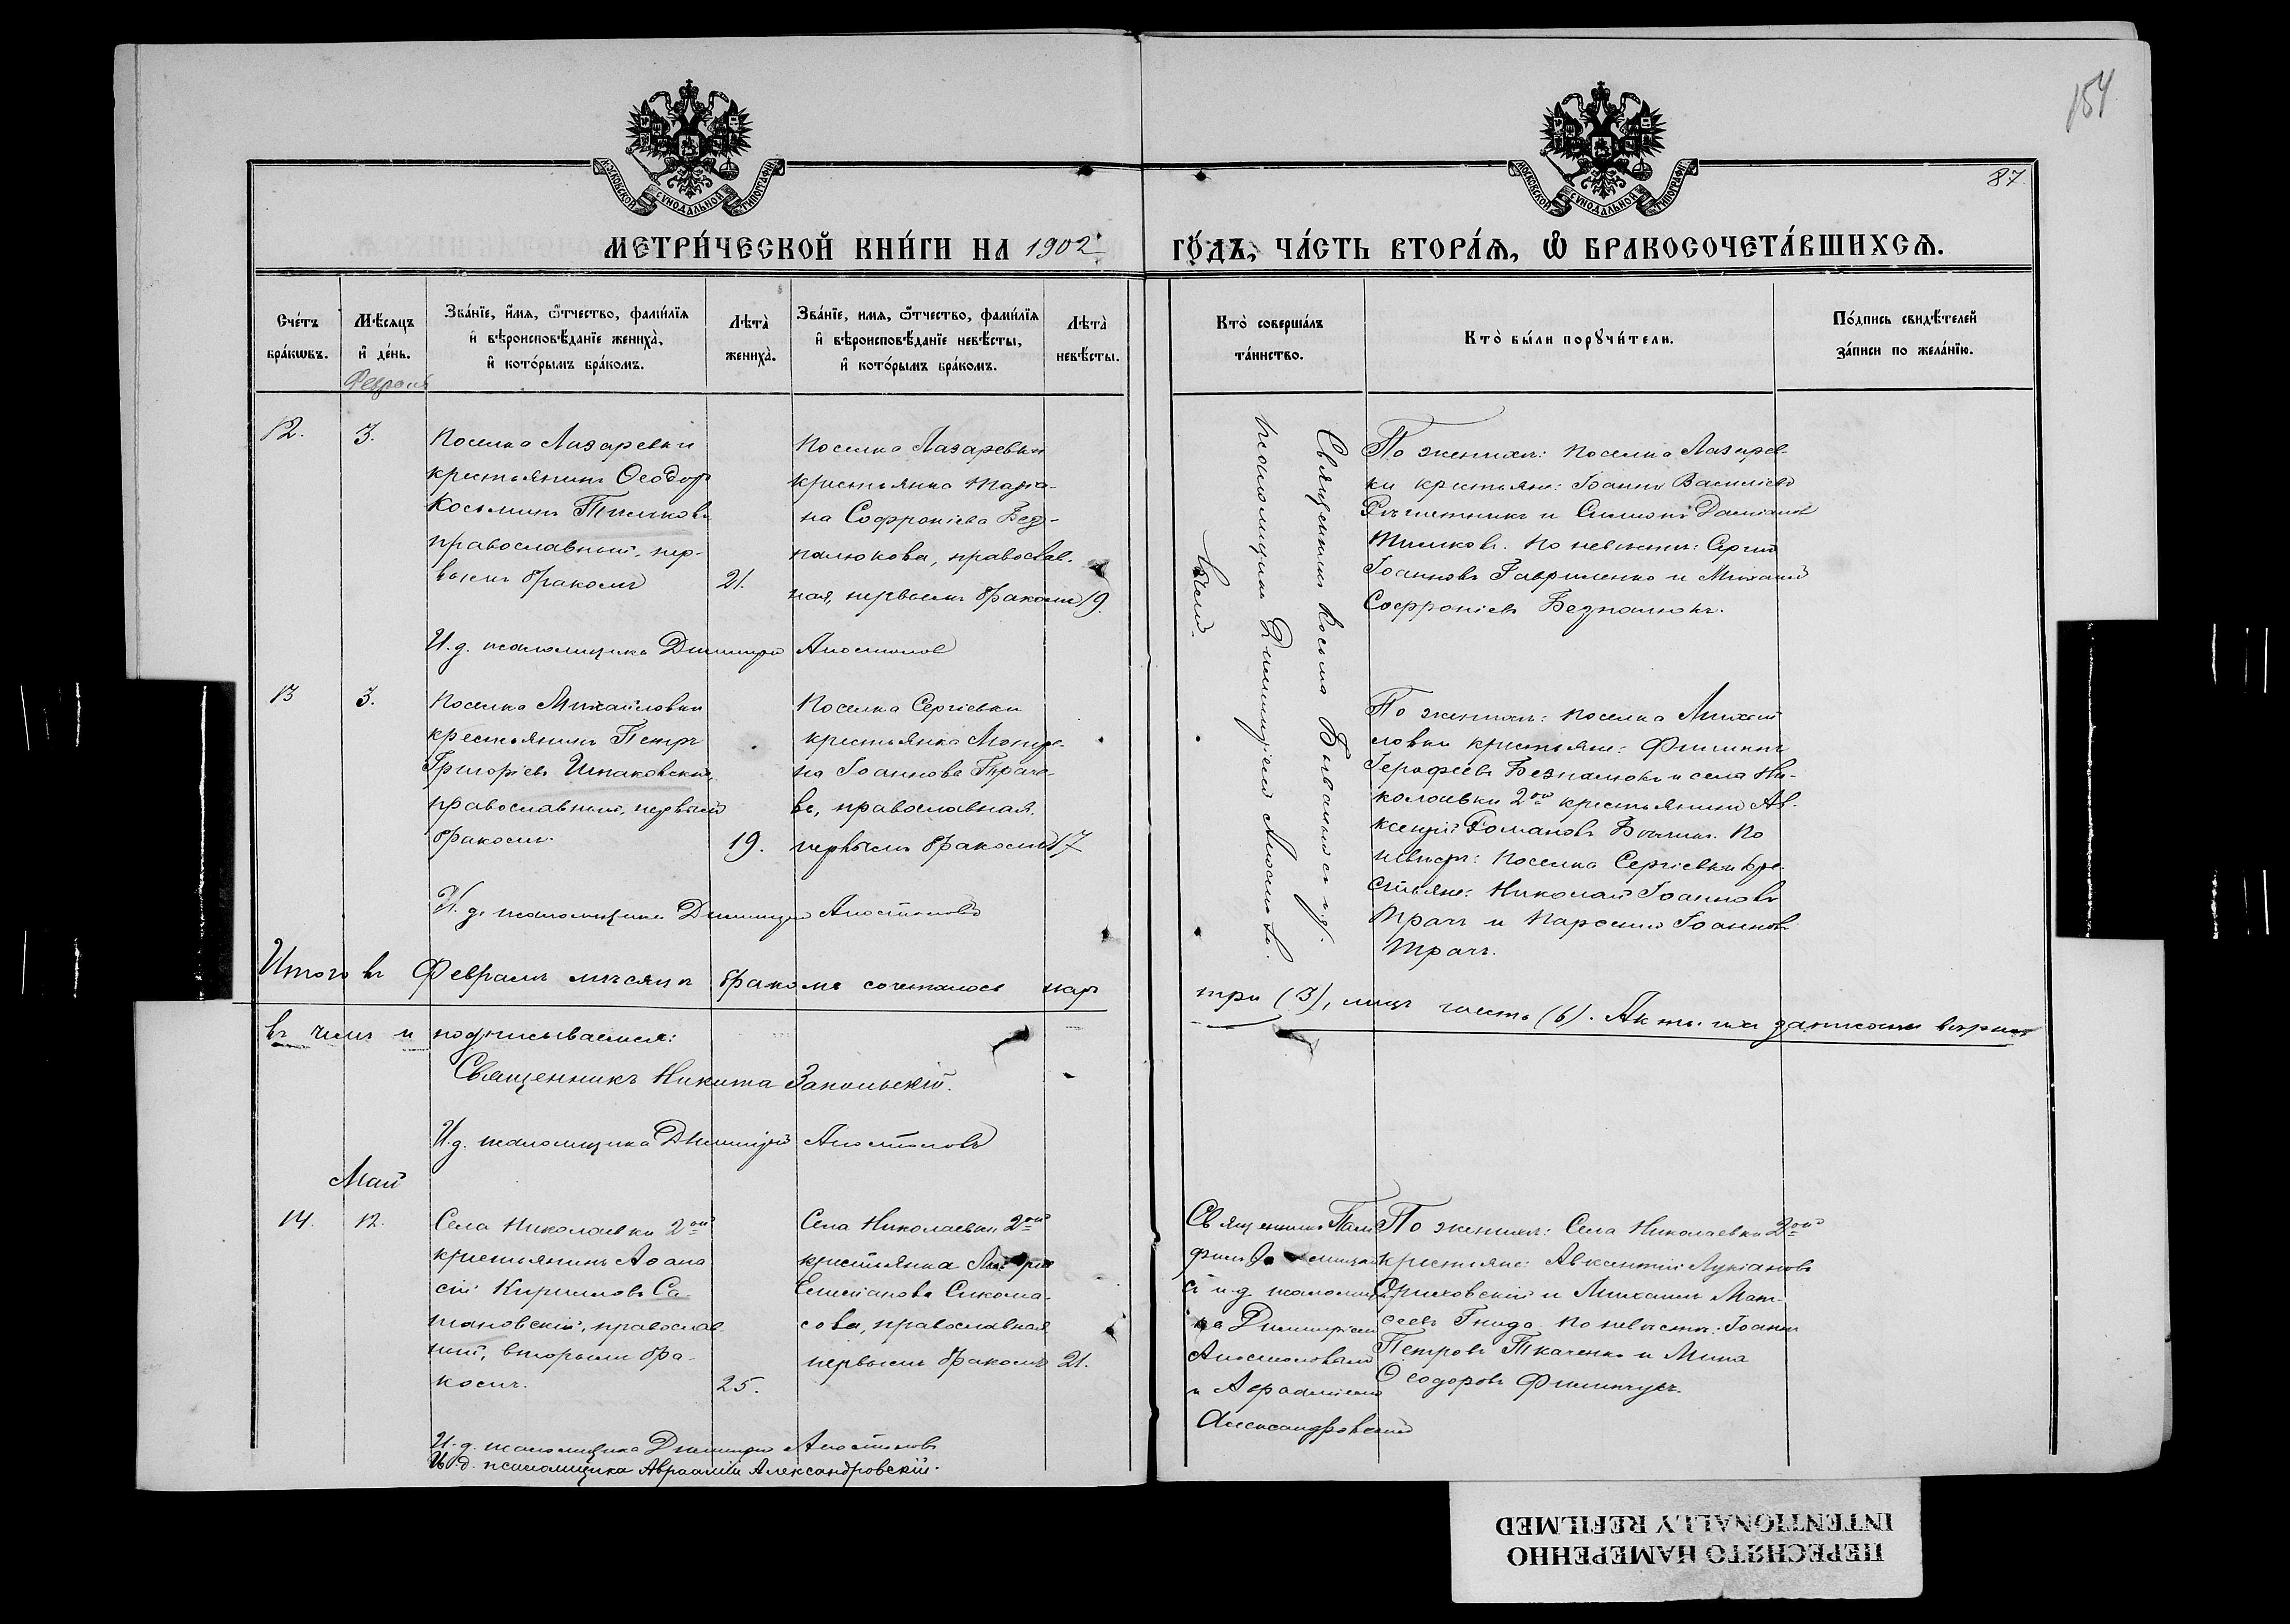 154
87.
МОСКОВСКОЙ СѴНОДАЛЬНОЙ ТИПОГРАФІИ
МОСКОВСКОЙ СѴНОДАЛЬНОЙ ТИПОГРАФІИ
МЕТРИ́ЧЕСКОЙ КНИ́ГИ НА 1902
ГО́ДЪ, ЧА́СТЬ ВТОРА́Я, Ѡ҆ БРАКОСОЧЕТА́ВШИХСѦ.
Сче́тъ
бра́кѡвъ.
Мѣ́сяцъ
и҆ де́нь.
Февраль
Зва́нїе, и҆́мя, ѻ҆́тчество, фами́лїя
и҆ вѣроисповѣ́данїе жениха̀,
и҆ кото́рымъ бра́комъ.
Лѣта̀
жениха̀.
Зва́нїе, имя, ѻ҆́тчество, фами́лїя
и҆ вѣроисповѣ́данїе невѣ́сты,
и҆ кото́рымъ бра́комъ.
Лѣта̀
невѣ́сты.
Кто̀ соверша́лъ
та́инство.
Кто̀ бы́ли порꙋчи́тели.
По́дпись свидѣ́телей
за́писи по жела́нїю.
12.
3.
Поселка Лазаревки
крестьянинъ Ѳеодоръ
Косьминъ
православный, пер-
вымъ бракомъ
21.
Поселка Лазаревки
крестьянка
на Софроніева Без-
палюкова, православ-
ная, первымъ бракомъ
19.
Священникъ Косьма съ и. д.
псаломщика Димитріемъ Апостоло-
вымъ.
По женихѣ: поселка Лазарев-
ки крестьяне: Іоаннъ Василіевъ
и Симеонъ Даміановъ
По невѣстѣ: Сергій
Іоанновъ Гавриленко и Михаилъ
Софроніевъ Безпалюкъ.
И. д. псаломщика Димитрій Апостоловъ
13
3.
Поселка Михайловки
крестьянинъ Петръ
Григоріевъ Шпаковскій,
православный, первымъ
бракомъ.
19.
Поселка Сергіевки
крестьянка Матре-
на Іоаннова Траче-
ва, православная,
первымъ бракомъ
17
По женихѣ: поселка Михай
ловки крестьяне: Филиппъ
Іероѳеевъ Безпалюкъ и села Ни-
колаевки 2ой крестьянинъ Ав-
ксентій Романовъ По
невѣстѣ: поселка Сергіевки кре-
стьяне: Николай Іоанновъ
Трачъ и Парѳеній Іоанновъ
Трачъ.
И. д. псаломщика Димитрій Апостоловъ
Итого въ Февралѣ мѣсяцѣ бракомъ сочеталось паръ
три (3), лицъ шесть (6). Акты сіи записаны вѣрно
въ чемъ и подписываемся:
Священникъ Никита Закольскій.
И. д. псаломщика Димитрій Апостоловъ
Май
14.
12.
Села Николаевки 2ой
крестьянинъ Аѳана
сій Кирилловъ Са-
тановскій, православ-
ный, вторымъ бра-
комъ.
25.
Села Николаевки 2ой
крестьянка
Емеліанова Сикома-
сова, православная
первымъ бракомъ
21.
Священникъ Пам
филъ
съ и. д. псаломщи
ка Димитріемъ
Апостоловымъ
и Авраміемъ
Александровскимъ
По женихѣ: Села Николаевки 2ой
крестьяне: Авксентій Лукіановъ
Ориховскій и Михаилъ Мат-
ѳеевъ Гнида. По невѣстѣ: Іоаннъ
Петровъ Ткаченко и Мина
Ѳеодоровъ Филипчукъ.
И. д. псаломщика Димитрій Апостоловъ
И. д. псаломщика Авраамій Александровскій.
ПЕРЕСНЯТО НАМЕРЕННО
INTENTIONALLY REFILMED